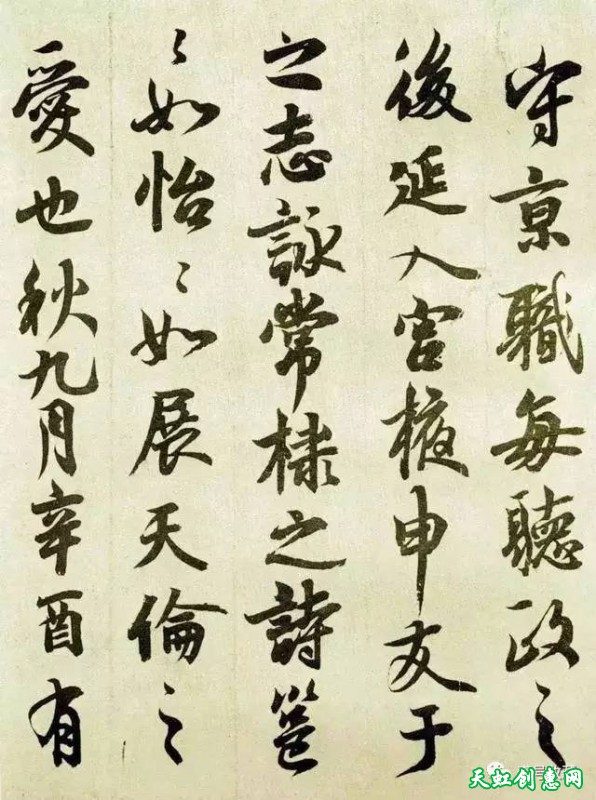 守京職每聽政之
後延入宮掖申友于
之志詠常棣之詩邕
〻如怡〻如展天倫之
愛也秋九月辛酉有
天虹创惠网